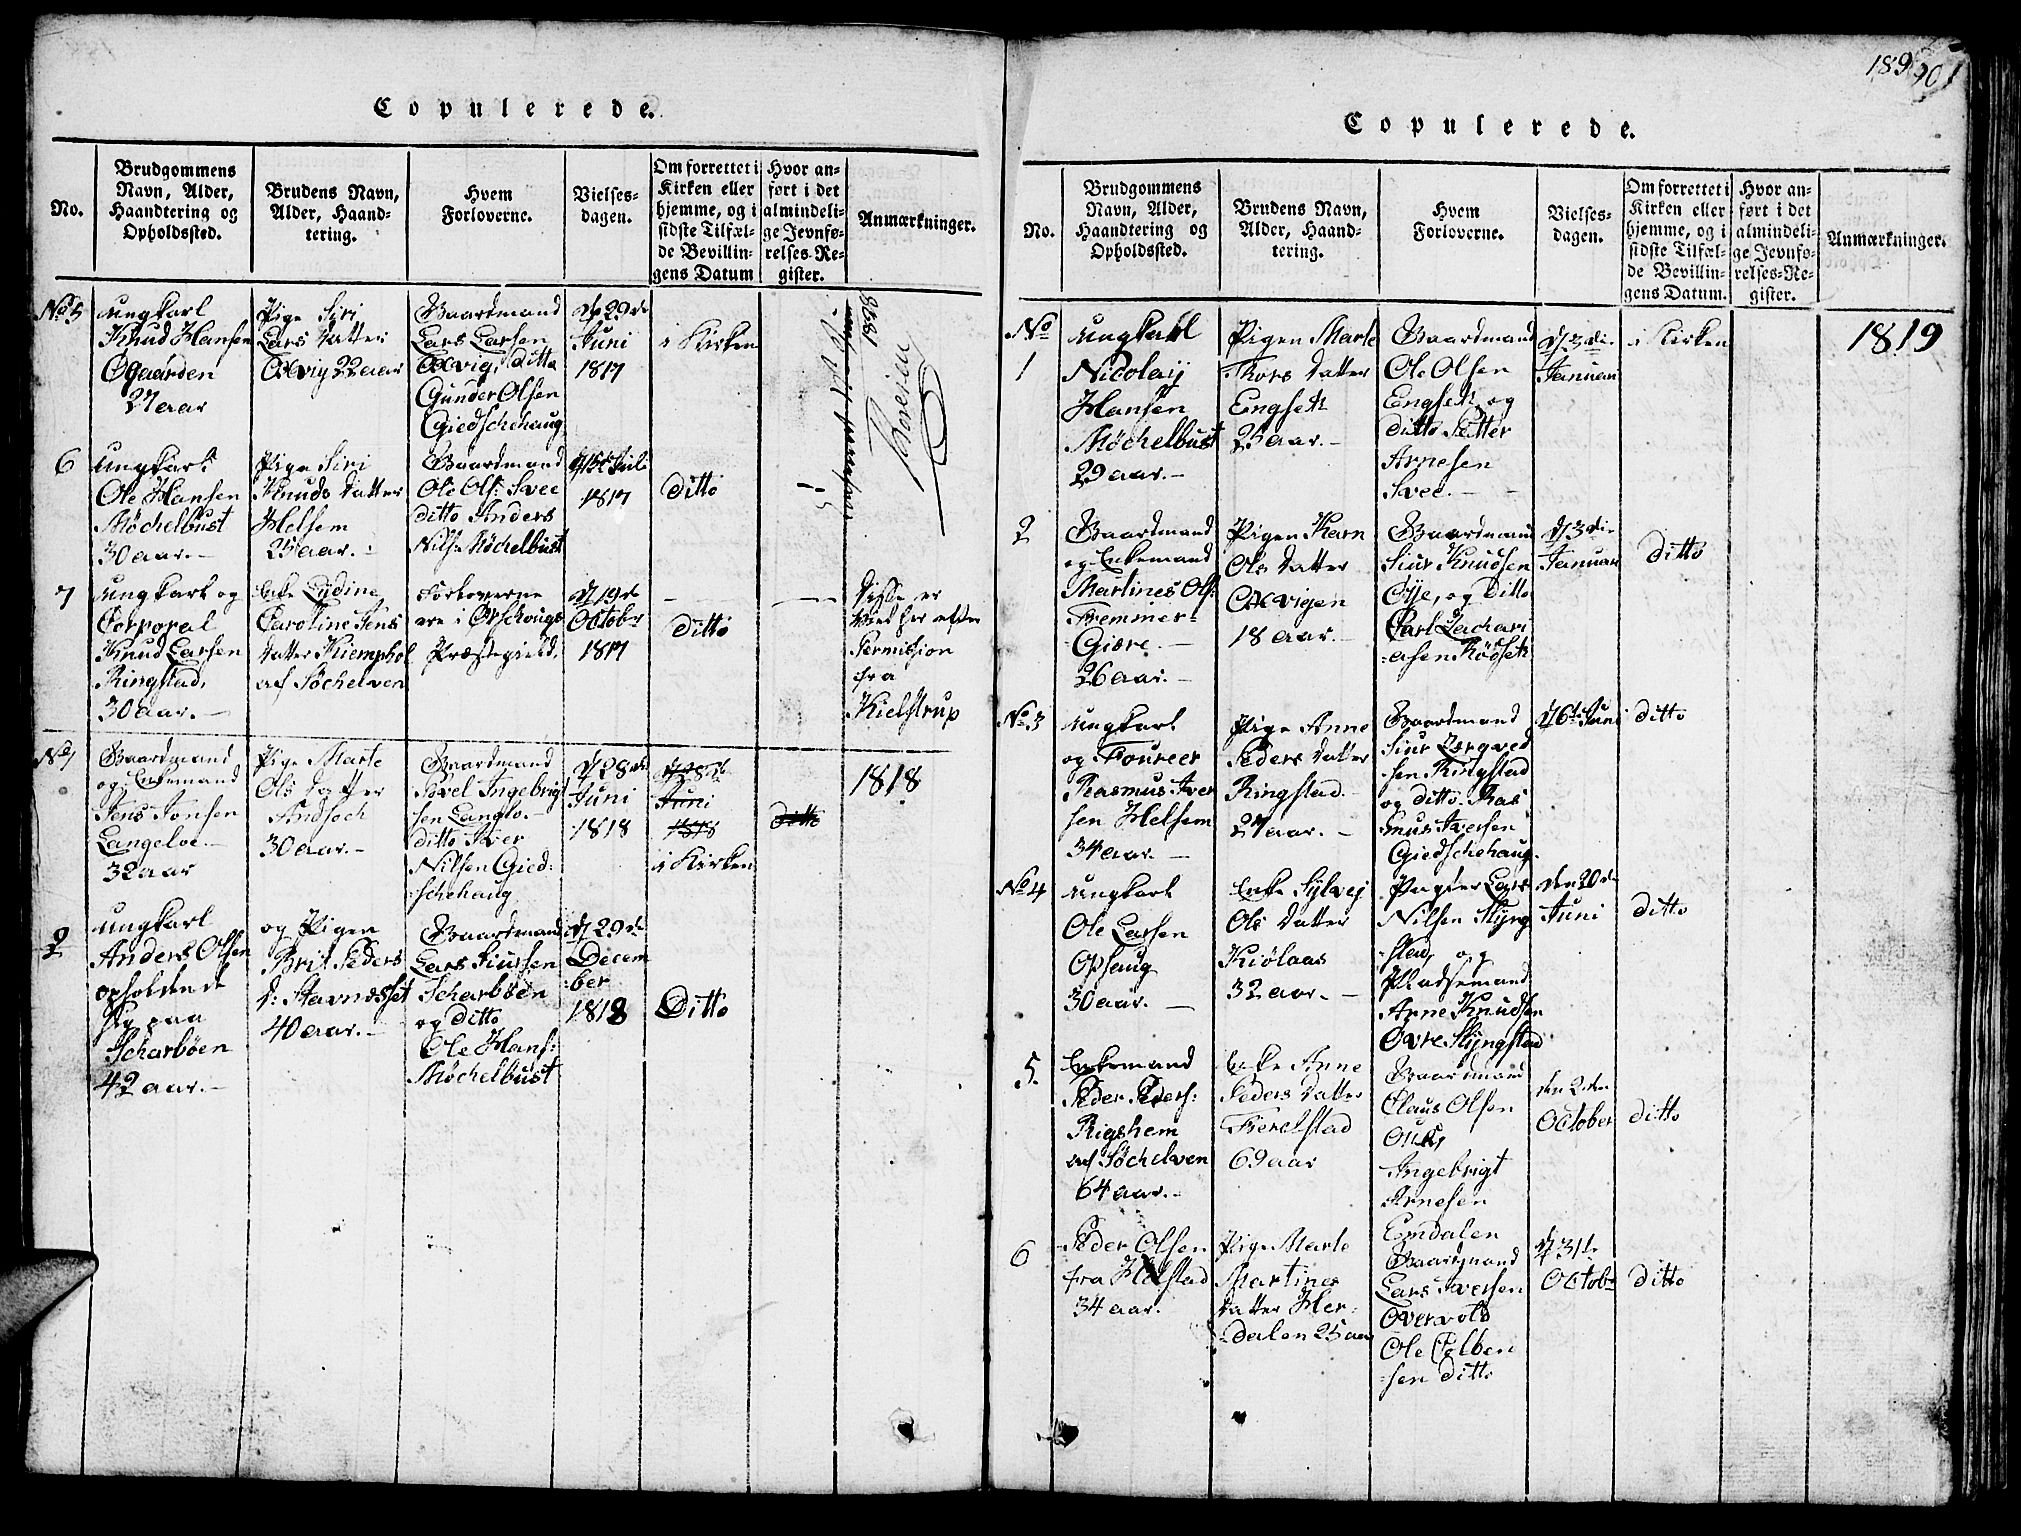 189
901
Copulerede.
No.
Brudgommens
Navn, Alder,
Haandtering og
Opholdssted.
Brudens Navn,
Alder, Haand-
tering.
Hvem
Forloverne.
Vielses-
dagen.
Om forrettet i
Kirken eller
hjemme, og i
sidste Tilfæl-
de Bevillin-
gens Datum
Hvor an-
ført i det
almindeli-
ge Jevnfø-
relses-Re-
gister.
Anmærkninger.
No 5
ungkarl
Knud Hansen
Øgaarden
27 aar
Pige Siri
Lars Datter
Oxvig 22 aar
Gaardmand
Lars Larsen
Oxvig, Ditto
Gunder Olsen
Giedschehaug
d 29de
Juni
1817
i Kirken
1818
6
ungkarl
Ole Hansen
Møchelbust
30 aar.-
Pige Siri
Knuds Datter
Helsem
25 aar.
Gaardmand
Ole Ols: Svee
ditto Anders
Nilsn Møchelbust
d 15de Juli
1817
Ditto
7
ungkarl og
Corporal
Knud Larsen
Ringstad,
30 aar.-
Enke Lydine
Caroline Jens
Datter Kiemphol
af Søchelven
Forloverne
ere i Ørschougs
Præstegield.
d 19de
Octobr
1817
-
Ditto
Disse er
viet her efter
Permission
fra
Kielstrup
No 1
Gaardmand
og Enkemand
Jens Jonsen
Langeloe.-
32 aar
Pige Marte
Ols Datter
Andsoch
30 aar.-
Gaardmand
Povel Ingebrigt
sen Langlo.-
ditto Iver
Nilsen Gied:
:schehaug
d 28de
Juni
1818
d 28de
Juni
1818
i Kirken
ditto
1818
2
ungkarl
Anders Olsen
opholdende
sig paa
Scharbøen
42 aar.-
og Pigen
Brit Peders
D: Stavndsset
40 aar.-
Gaardmand
Lars Siursen
Scharbøen
og ditto
Ole Hans:
Møchelbust
d 29de
Decem
:ber
1818
Ditto
Copulerede.
No.
Brudgommens
Navn, Alder,
Haandtering og
Opholdssted.
Brudens Navn,
Alder, Haand-
tering.
Hvem
Forloverne.
Vielses-
dagen.
Om forrettet i
Kirken eller
hjemme, og i
sidste Tilfæl-
de Bevillin-
gens Datum.
Hvor an-
ført i det
almindeli-
ge Jevnfø-
relses-Re-
gister.
Anmærkninger.
No
1
ungkarl
Nicolaij
Hansen
Møchelbust
29 aar.-
Pigen Marte
Thors Datter
Engset
25 aar.-
Gaardmand
Ole Olsen
Engset, og
ditto Petter
Arnesen
Svee.-
d 3die
Januari
i Kirken
1819
2
Gaardmand
og Enkemand
Martines Ols:
Fremmer-
Giære.-
26 aar.-
Pigen Karn
Ols Datter
Oxvigen
18 aar.-
Gaardmand
Siur Knudsen
Øye, og Ditto
Carl Zachari
:asen Rødset
d 3die
Januari
Ditto
No 3
ungkarl
og Foureer
Rasmus Iver
sen Helsem
34 aar.-
Pige Anne
Peders Datter
Ringstad.-
27 aar.-
Gaardmand
Siur
:sen Ringstad
og ditto Ras
:mus Iversen
Giedschehaug.
d 6te Juni
ditto
No 4
ungkarl
Ole Larsen
Ophaug
30 aar.-
Enke Sylvej
Ols Datter
Kiølaas
32 aar.-
Pagter Lars
Nilsen Slyng
:stad, og
Pladsemand
Arne Knudsen
Øvre Slyngstad
den 20de
Juni
ditto
5.
Enkemand
Peder Peders:
Rigshem
af Søchelven
64 aar.-
Enke Anne
Peders Datter
Fierelstad
69 aar
Gaardmand
Claus Olsen
Ingebrigt
Arnesen
Emdalen
den 2den
October
ditto
6
Peder Olsen
fra Helstad
34 aar.
Pige Marte
Martines
Datter Her:
:dalen 25 aar
Gaardmand
Lars Iversen
Overvold
Ole Colben
:sen ditto
d 31te
Octobr
ditto